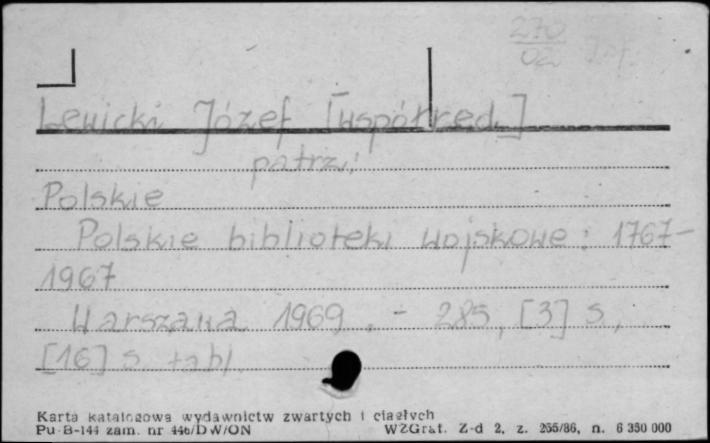 270
02
Lewicki Józef [współred.]
patrz:
Polskie
Polskie biblioteki wojskowe : 1767-
1967
Warszawa 1969 . - 285, [3] s,
[16] s. tabl.
Karta katalogowa wydawnictw zwartych i ciągłych
Pu-B-144 zam. nr 446/DW/ON WZGraf. Z-d 2, z. 255/86, n. 6 350 000